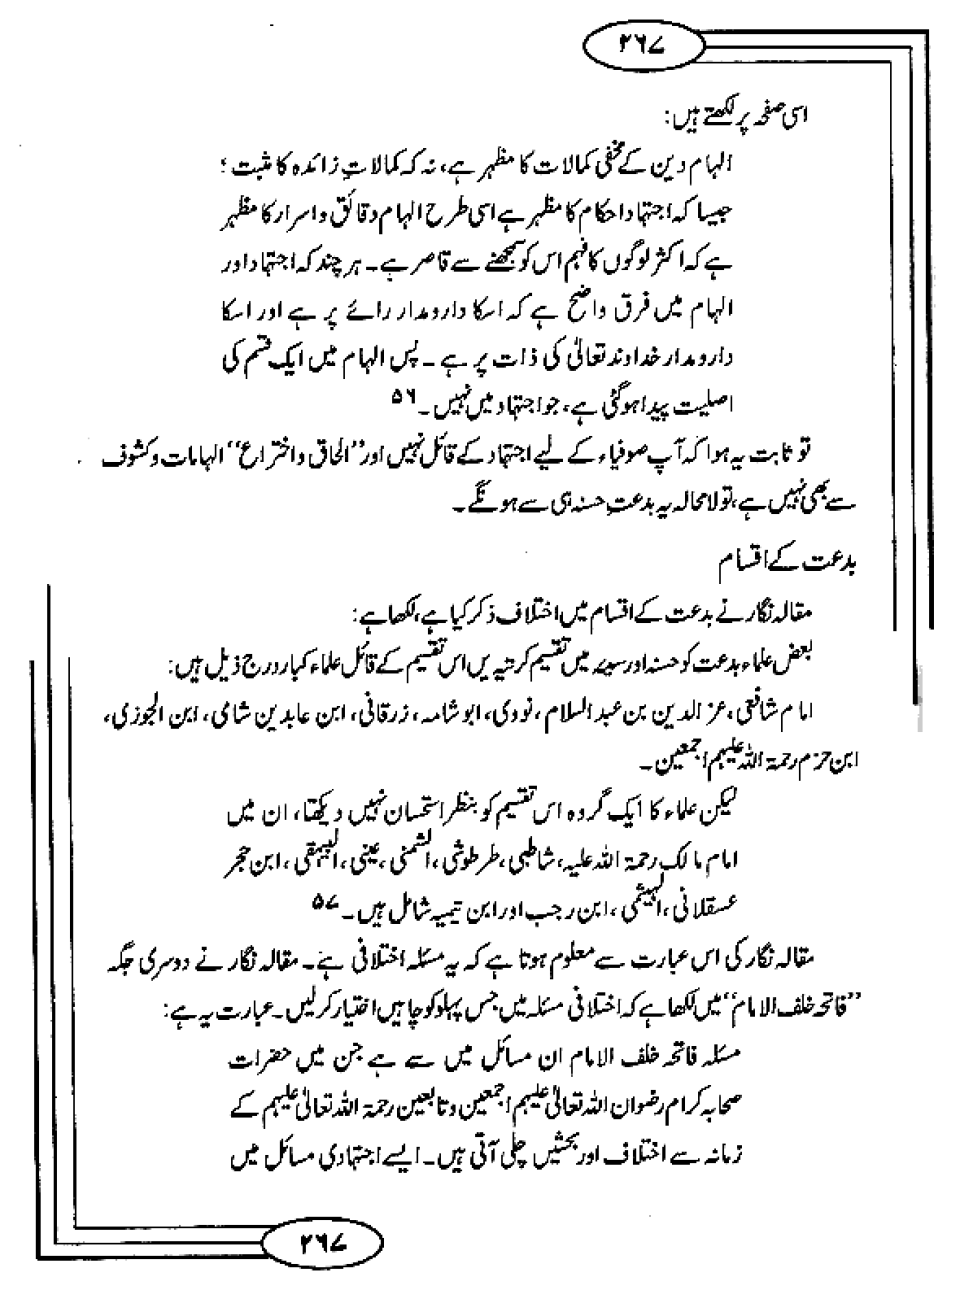 ۲۶۷
اسی صفحہ پر لکھتے ہیں:
الہام دین کے مخفی کمالات کا مظہر ہے، نہ کہ کمالاتِ زائدہ کا مثبت ؛
جیسا کہ اجتہاد احکام کا مظہر ہے اسی طرح الہام دقائق و اسرار کا مظہر
ہے کہ اکثر لوگوں کا فہم اس کو سمجھنے سے قاصر ہے۔ ہر چند کہ اجتہاد اور
الہام میں فرق واضح ہے کہ اسکا دارومدار رائے پر ہے اور اسکا
دارومدار خداوند تعالیٰ کی ذات پر ہے ۔ پس الہام میں ایک قسم کی
اصلیت پیدا ہوگئی ہے، جو اجتہاد میں نہیں ۔ ۵۶
تو ثابت یہ ہوا کہ آپ صوفیاء کے لیے اجتہاد کے قائل نہیں اور ”الحاق و اختراع“ الہامات و کشوف
سے بھی نہیں ہے، تو لامحالہ یہ بدعتِ حسنہ ہی سے ہونگے ۔
بدعت کے اقسام
مقالہ نگار نے بدعت کے اقسام میں اختلاف ذکر کیا ہے، لکھا ہے:
بعض علماء بدعت کو حسنہ اور سیئہ میں تقسیم کرتے ہیں اس تقسیم کے قائل علماء کبار درج ذیل ہیں:
امام شافعی، عز الدین بن عبد السلام ، نووی، ابو شامہ، زرقانی، ابن عابدین شامی، ابن الجوزی،
ابن حزم رحمۃ اللہ علیہم اجمعین ۔
لیکن علماء کا ایک گروہ اس تقسیم کو بنظر استحسان نہیں دیکھتا، ان میں
امام مالک رحمۃ اللہ علیہ، شاطبی، طرطوشی، الشمنی، عینی، البیہقی، ابن حجر
عسقلانی، الہیثمی، ابن رجب اور ابن تیمیہ شامل ہیں ۔ ۵۷
مقالہ نگار کی اس عبارت سے معلوم ہوتا ہے کہ یہ مسئلہ اختلافی ہے۔ مقالہ نگار نے دوسری جگہ
”فاتحہ خلف الامام“ میں لکھا ہے کہ اختلافی مسئلہ میں جس پہلو کو چاہیں اختیار کرلیں۔ عبارت یہ ہے:
مسئلہ فاتحہ خلف الامام ان مسائل میں سے ہے جن میں حضرات
صحابہ کرام رضوان اللہ تعالیٰ علیہم اجمعین و تابعین رحمۃ اللہ تعالیٰ علیہم کے
زمانہ سے اختلاف اور بحثیں چلی آتی ہیں۔ ایسے اجتہادی مسائل میں
۲۶۷